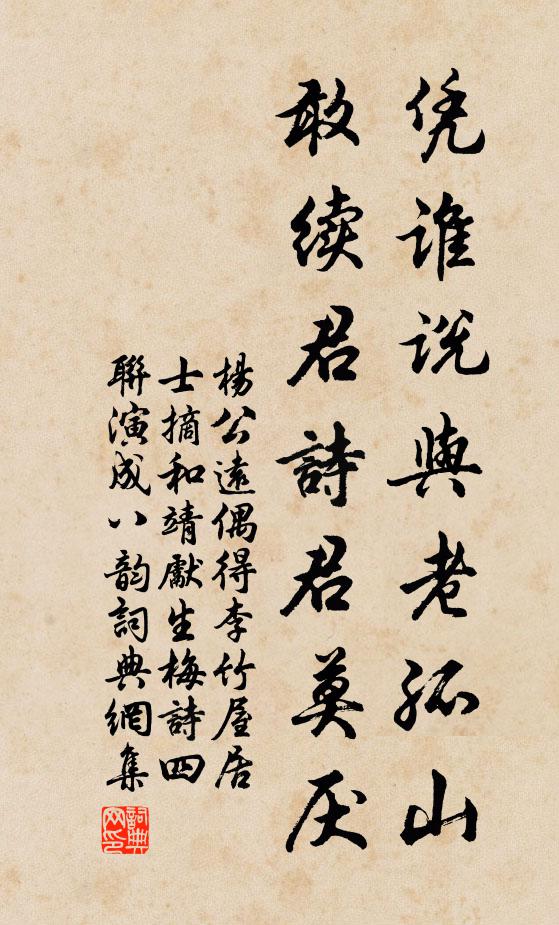 凭谁说與老孤山
敢续君詩君莫厌
楊公遠偶得李竹屋居
士摘和靖獻生梅詩四
聯演成八韵詞典網集
詞典网印